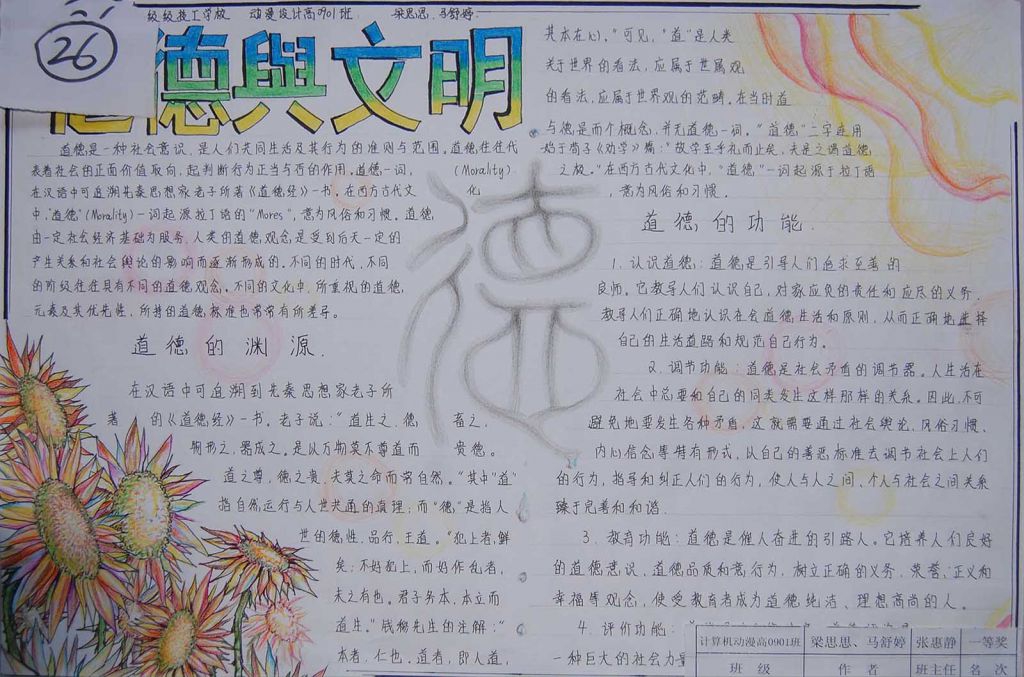 级级技工学校 动漫设计高0901班. 梁思思、马舒婷.
26
德與文明
道德是一种社会意识,是人们共同生活及其行为的准则与范围。道德往往代
表着社会的正面价值取向,起判断行为正当与否的作用。道德一词,
在汉语中可追溯先秦思想家老子所著《道德经》一书。在西方古代文 (Morality) 化
中,"道德"(Morality)一词起源拉丁语的"Mores",意为风俗和习惯。道德
由一定社会经济基础为服务,人类的道德观念是受到后天一定的
产生关系和社会舆论的影响而逐渐形成的。不同的时代,不同
的阶级往往具有不同的道德观念。不同的文化中,所重视的道德,
元素及其优先性,所持的道德标准也常常有所差异。
道德的渊源.
在汉语中可追溯到先秦思想家老子所
著 的《道德经》一书。老子说:"道生之,德 畜之,
物形之,器成之。是以万物莫不尊道而 贵德。
道之尊,德之贵,夫莫之命而常自然。"其中"道"
指自然运行与人世共通的真理;而"德"是指人
世的德性,品行,王道。"犯上者,鲜
矣;不好犯上,而好作乱者,
未之有也。君子务本,本立而
道生。"钱穆先生的注解:"
本者,仁也。道者,即人道,
其本在心。"可见,"道"是人类
关于世界的看法,应属于世属观
的看法,应属于世界观的范畴。在当时道
与德是而个概念,并无道德一词。"道德"二字连用
始于荀子《劝学》篇:"故学至乎礼而止矣,夫是之谓道德
之极。"在西方古代文化中,"道德"一词起源于拉丁语
,意为风俗和习惯.
道德的功能.
1.认识道德:道德是引导人们追求至善的
良师。它教导人们认识自己,对家应负的责任和应尽的义务,
教导人们正确地认识社会道德生活和原则,从而正确地选择
自己的生活道路和规范自己行为。
2.调节功能:道德是社会矛盾的调节器。人生活在
社会中总要和自己的同类发生这样那样的关系。因此,不可
避免地要发生各种矛盾,这就需要通过社会舆论、风俗习惯、
内心信念等特有形式,从自己的善恶标准去调节社会上人们
的行为,指导和纠正人们的行为,使人与人之间、个人与社会之间关系
臻于完善和和谐.
3.教育功能:道德是催人奋进的引路人。它培养人们良好
的道德意识、道德品质和意行为,树立正确的义务、荣誉、正义和
幸福等观念,使受教育者成为道德纯洁、理想高尚的人。
4.评价功能:
一种巨大的社会力量
德
计算机动漫高0901班 梁思思、马舒婷 张惠静 一等奖
班 级 作 者 班主任 名 次